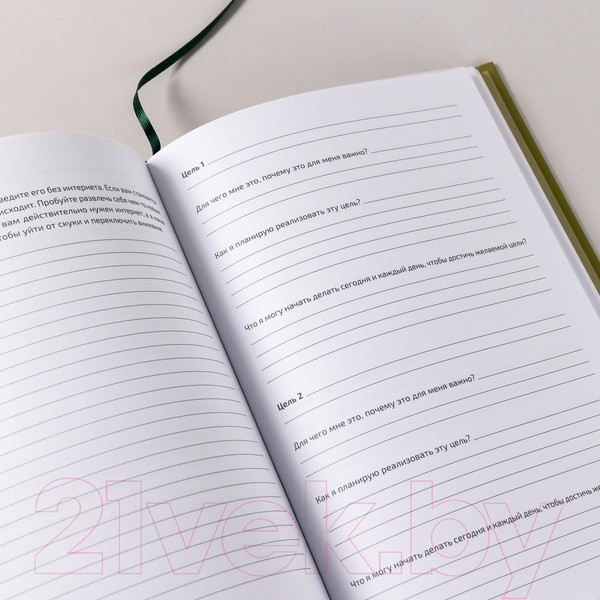 ведите его без интернета. Если вам становится
исходит. Пробуйте развлечь себя чем-то новым
вам действительно нужен интернет, а в каких
тобы уйти от скуки и переключить внимание.
Цель 1
Для чего мне это, почему это для меня важно?
Как я планирую реализовать эту цель?
Что я могу начать делать сегодня и каждый день, чтобы достичь желаемой цели?
Цель 2
Для чего мне это, почему это для меня важно?
Как я планирую реализовать эту цель?
Что я могу начать делать сегодня и каждый день, чтобы достичь же
21vek.by